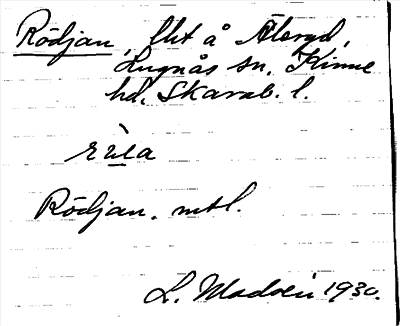 Rödjan, lht å Äleryd,
Lugnås sn. Kinne
hd. Skarab. l.
Rödjan. mtl.
L. Modén 1930.